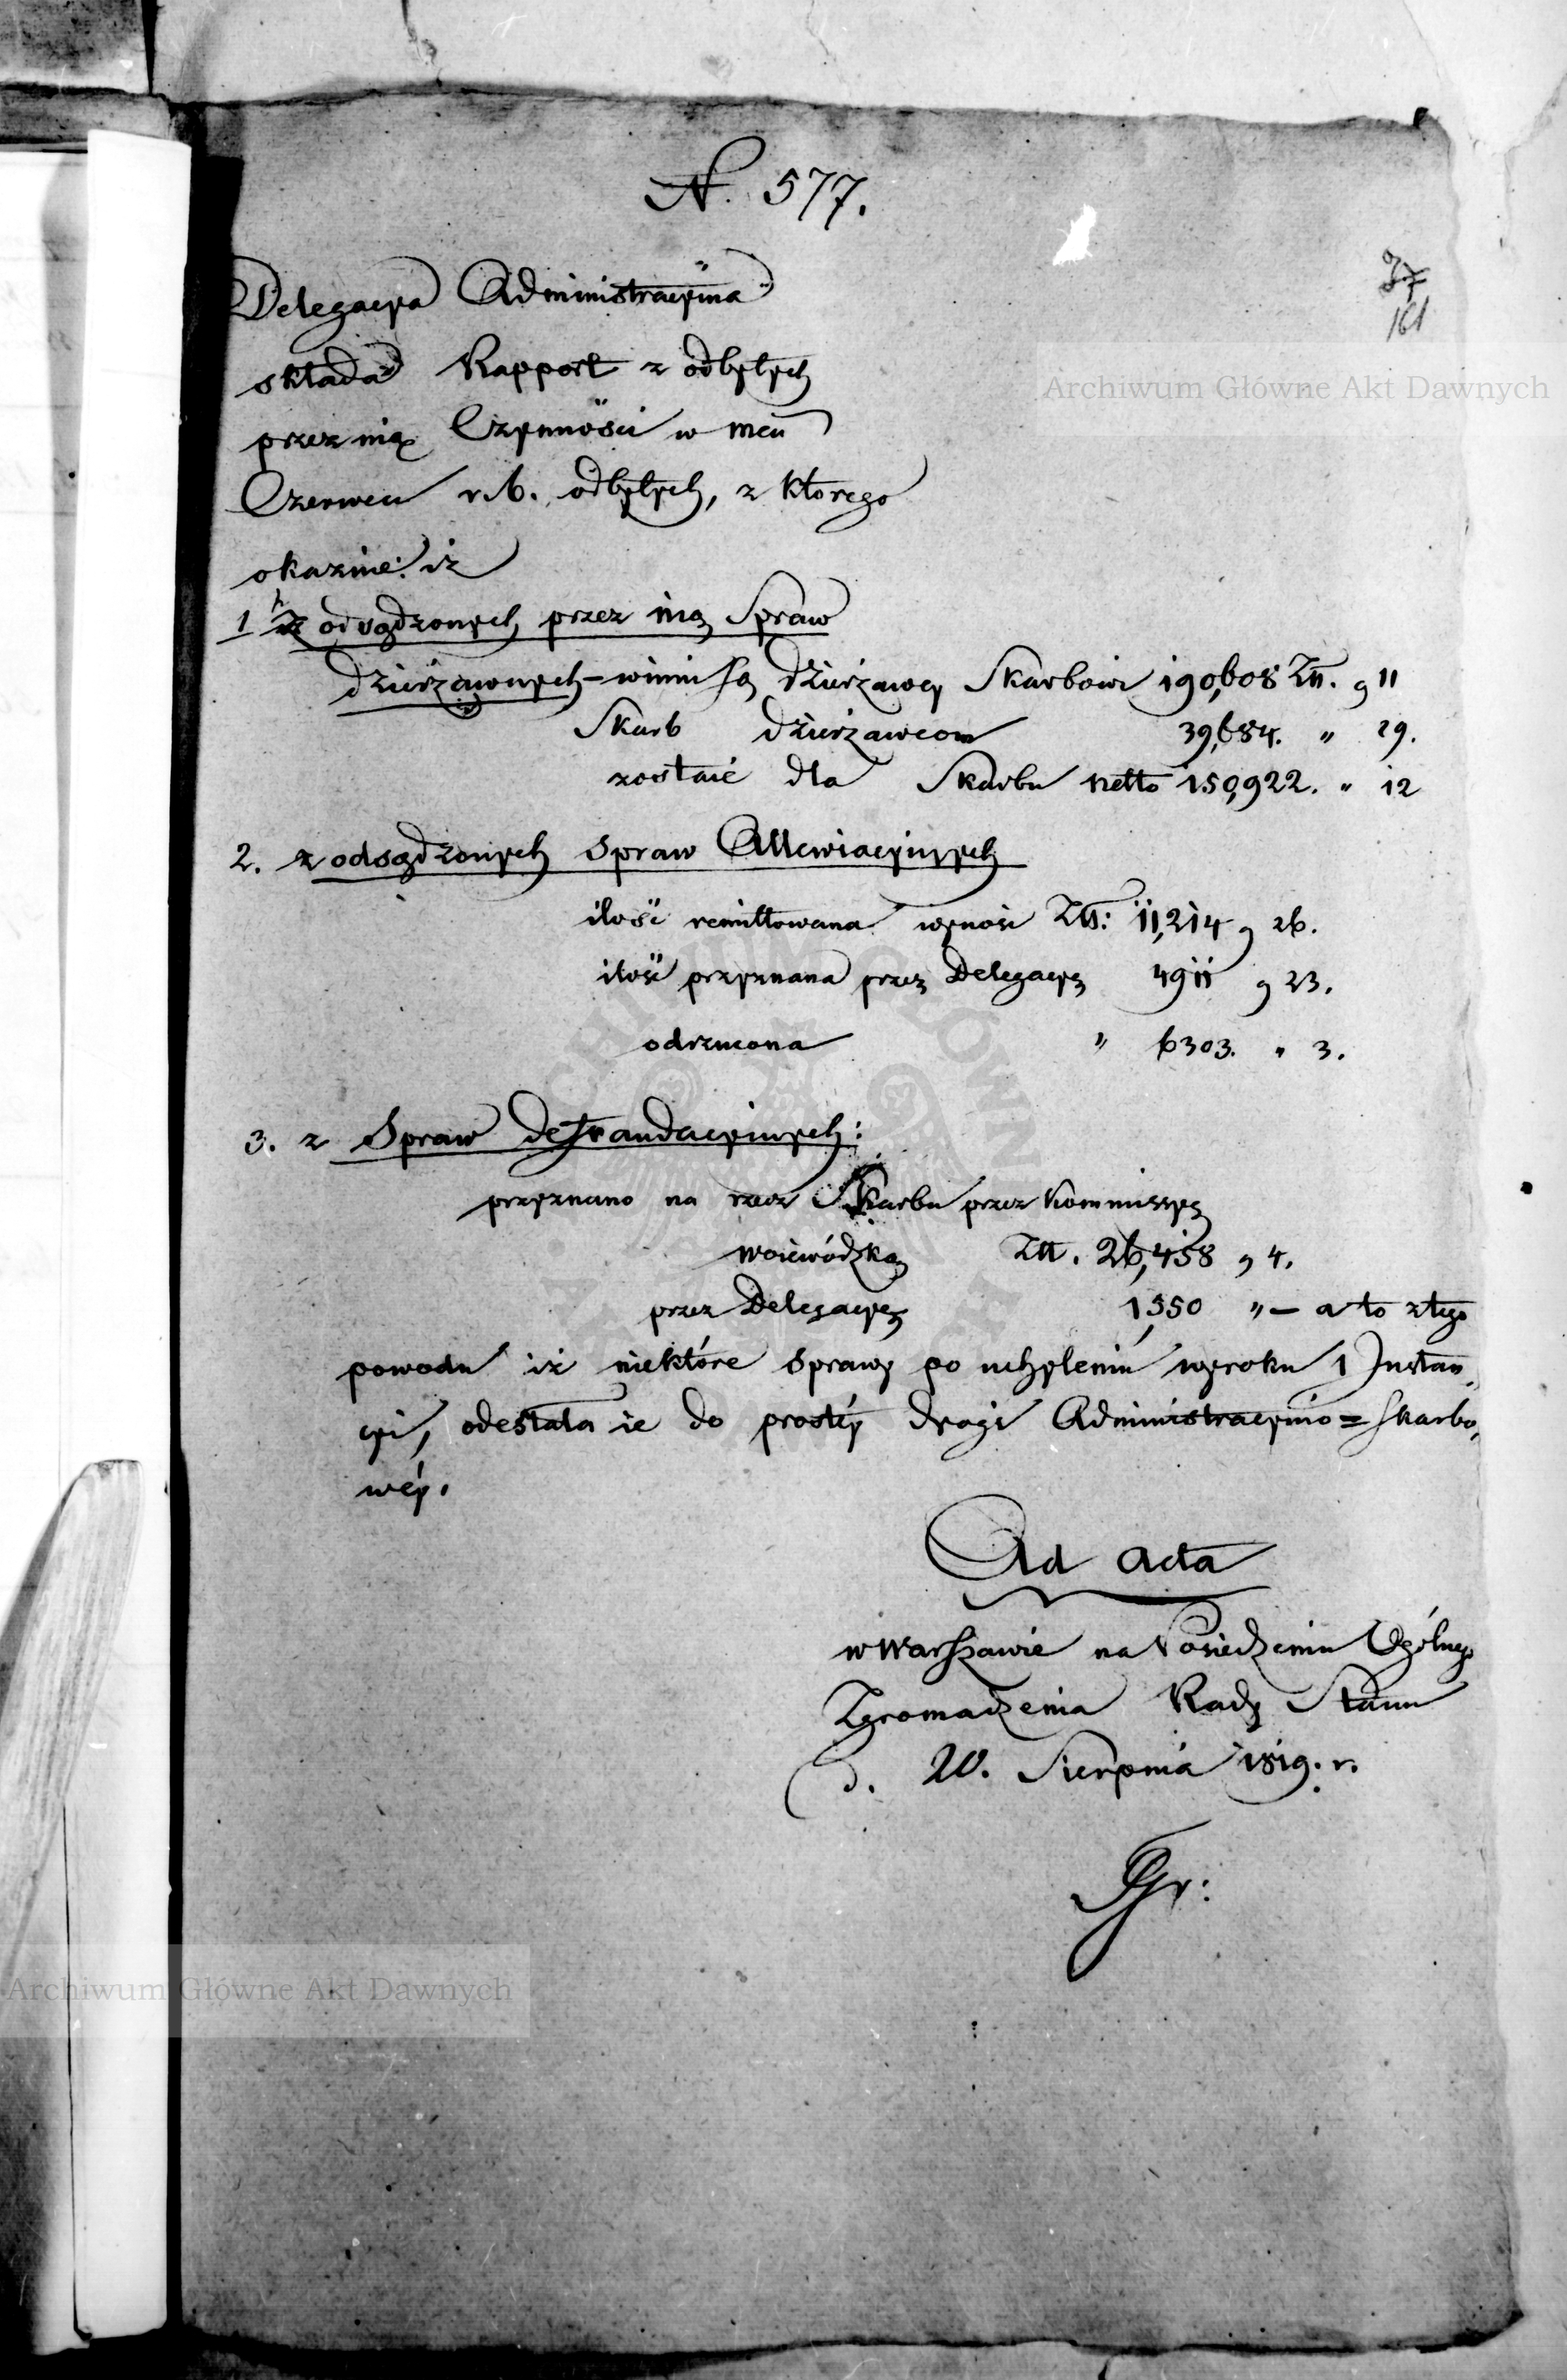 N. 577.
37
161
Delegacya Administracyina
składa Rapport z odbytych
przez nią Czynności w mcu
Czerwcu r.b. odbytych, z którego
okazuie: iż
1 z odsądzonych przez nią Spraw
dzierżawnych – winni są dzierżawcy Skarbowi 190,608 Złł. g 11
Skarb dzierżawcom 39,684. " 29.
zostaie dla Skarbu netto 150,922. " 12
2. z odsądzonych spraw Allewiacyinych
ilość remittowana wynosi Złł: 11,214 g 26.
ilość przyznana przez Delegacyę 4911 g 23.
odrzucona " 6303. " 3.
3. z Spraw defraudacyinych:
przyznano na rzecz Skarbu przez Kommissyę
Woiewódzką Złł. 26,458 g 4.
przez Delegacyę 1,550 " – a to z tego
powodu iż niektóre sprawy po uchyleniu wyroku 1 Instan„
cyi, odesłała ie do prostéy drogi Administracyino = skarbo„
wéy.
Ad acta
w Warszawie na Posiedzeniu Ogólnego
Zgromadzenia Rady Stanu
d. 20. Sierpnia 1819. r.
Archiwum Główne Akt Dawnych
Archiwum Główne Akt Dawnych